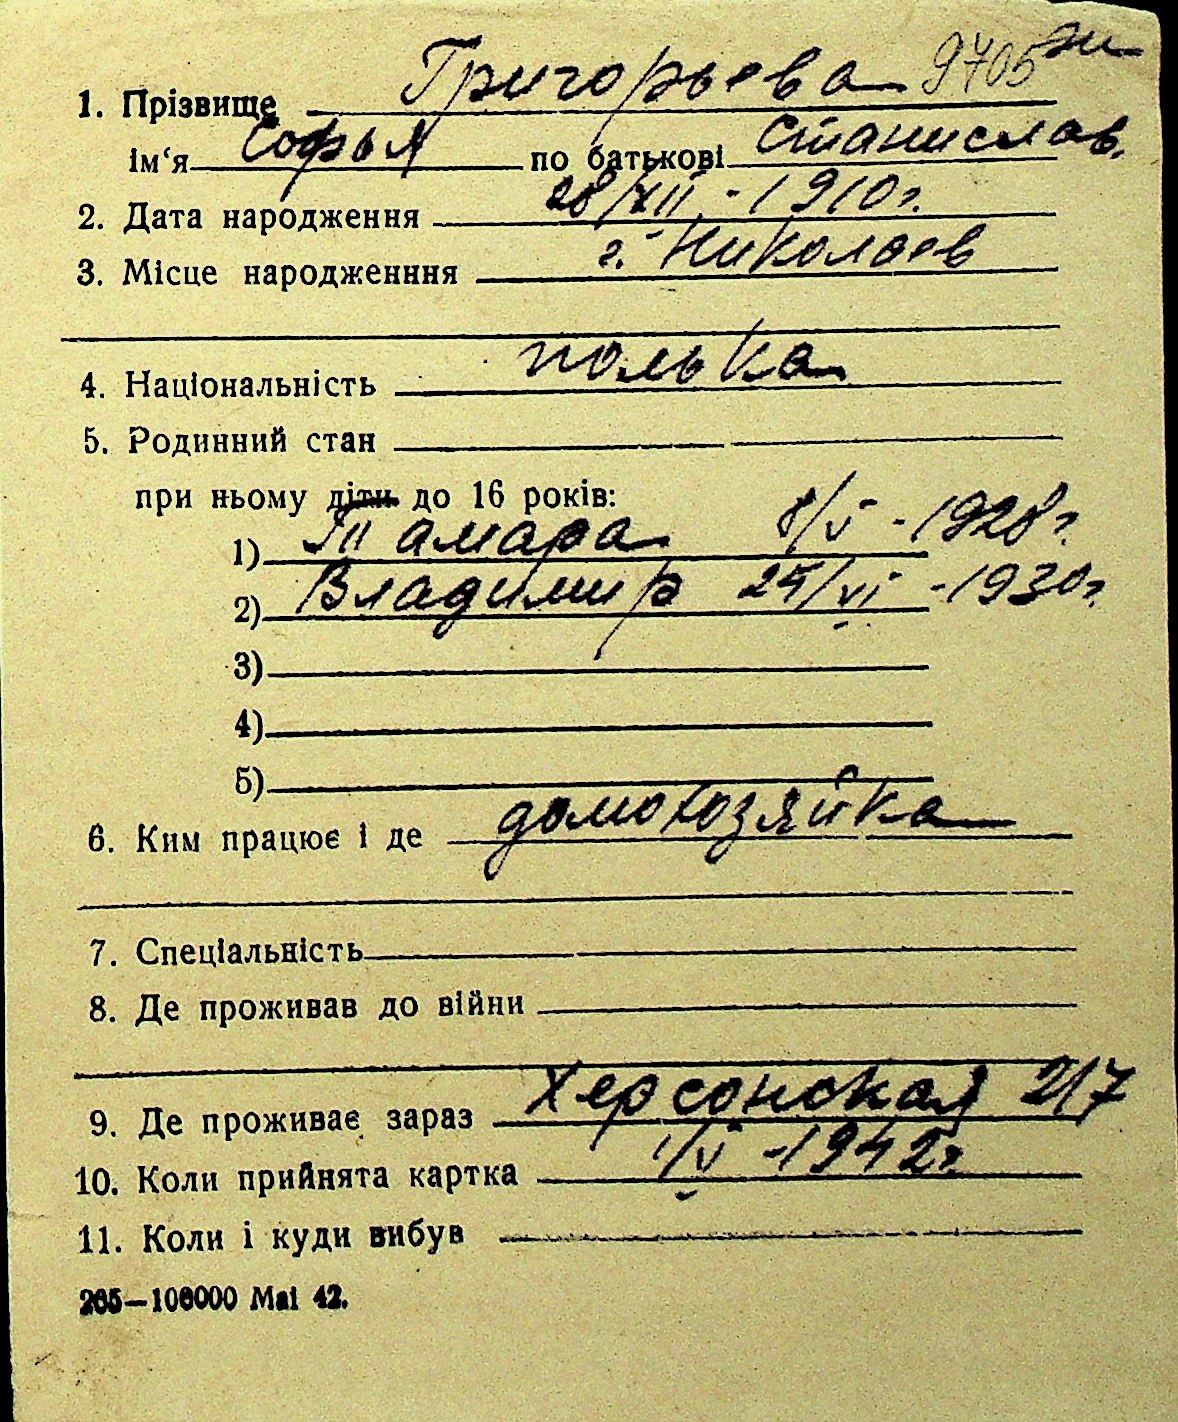 1. Прізвище Григорьева 9705 эи
ім‘я Софья по батькові Станислав.
2. Дата народження 28/XII - 1910 г.
3. Місце народженння г. Николаев
4. Національність полька
5. Родинний стан
при ньому діти до 16 років:
1) Тамара 8/V - 1928 г.
2) Владимир 25/VI - 1930 г.
3)
4)
5)
6. Ким працює і де домохозяйка
7. Спеціальність
8. Де проживав до війни
9. Де проживає зараз Херсонская 217
10. Коли прийнята картка 1/V - 1942 г.
11. Коли і куди вибув
265—106000 Mai 42.